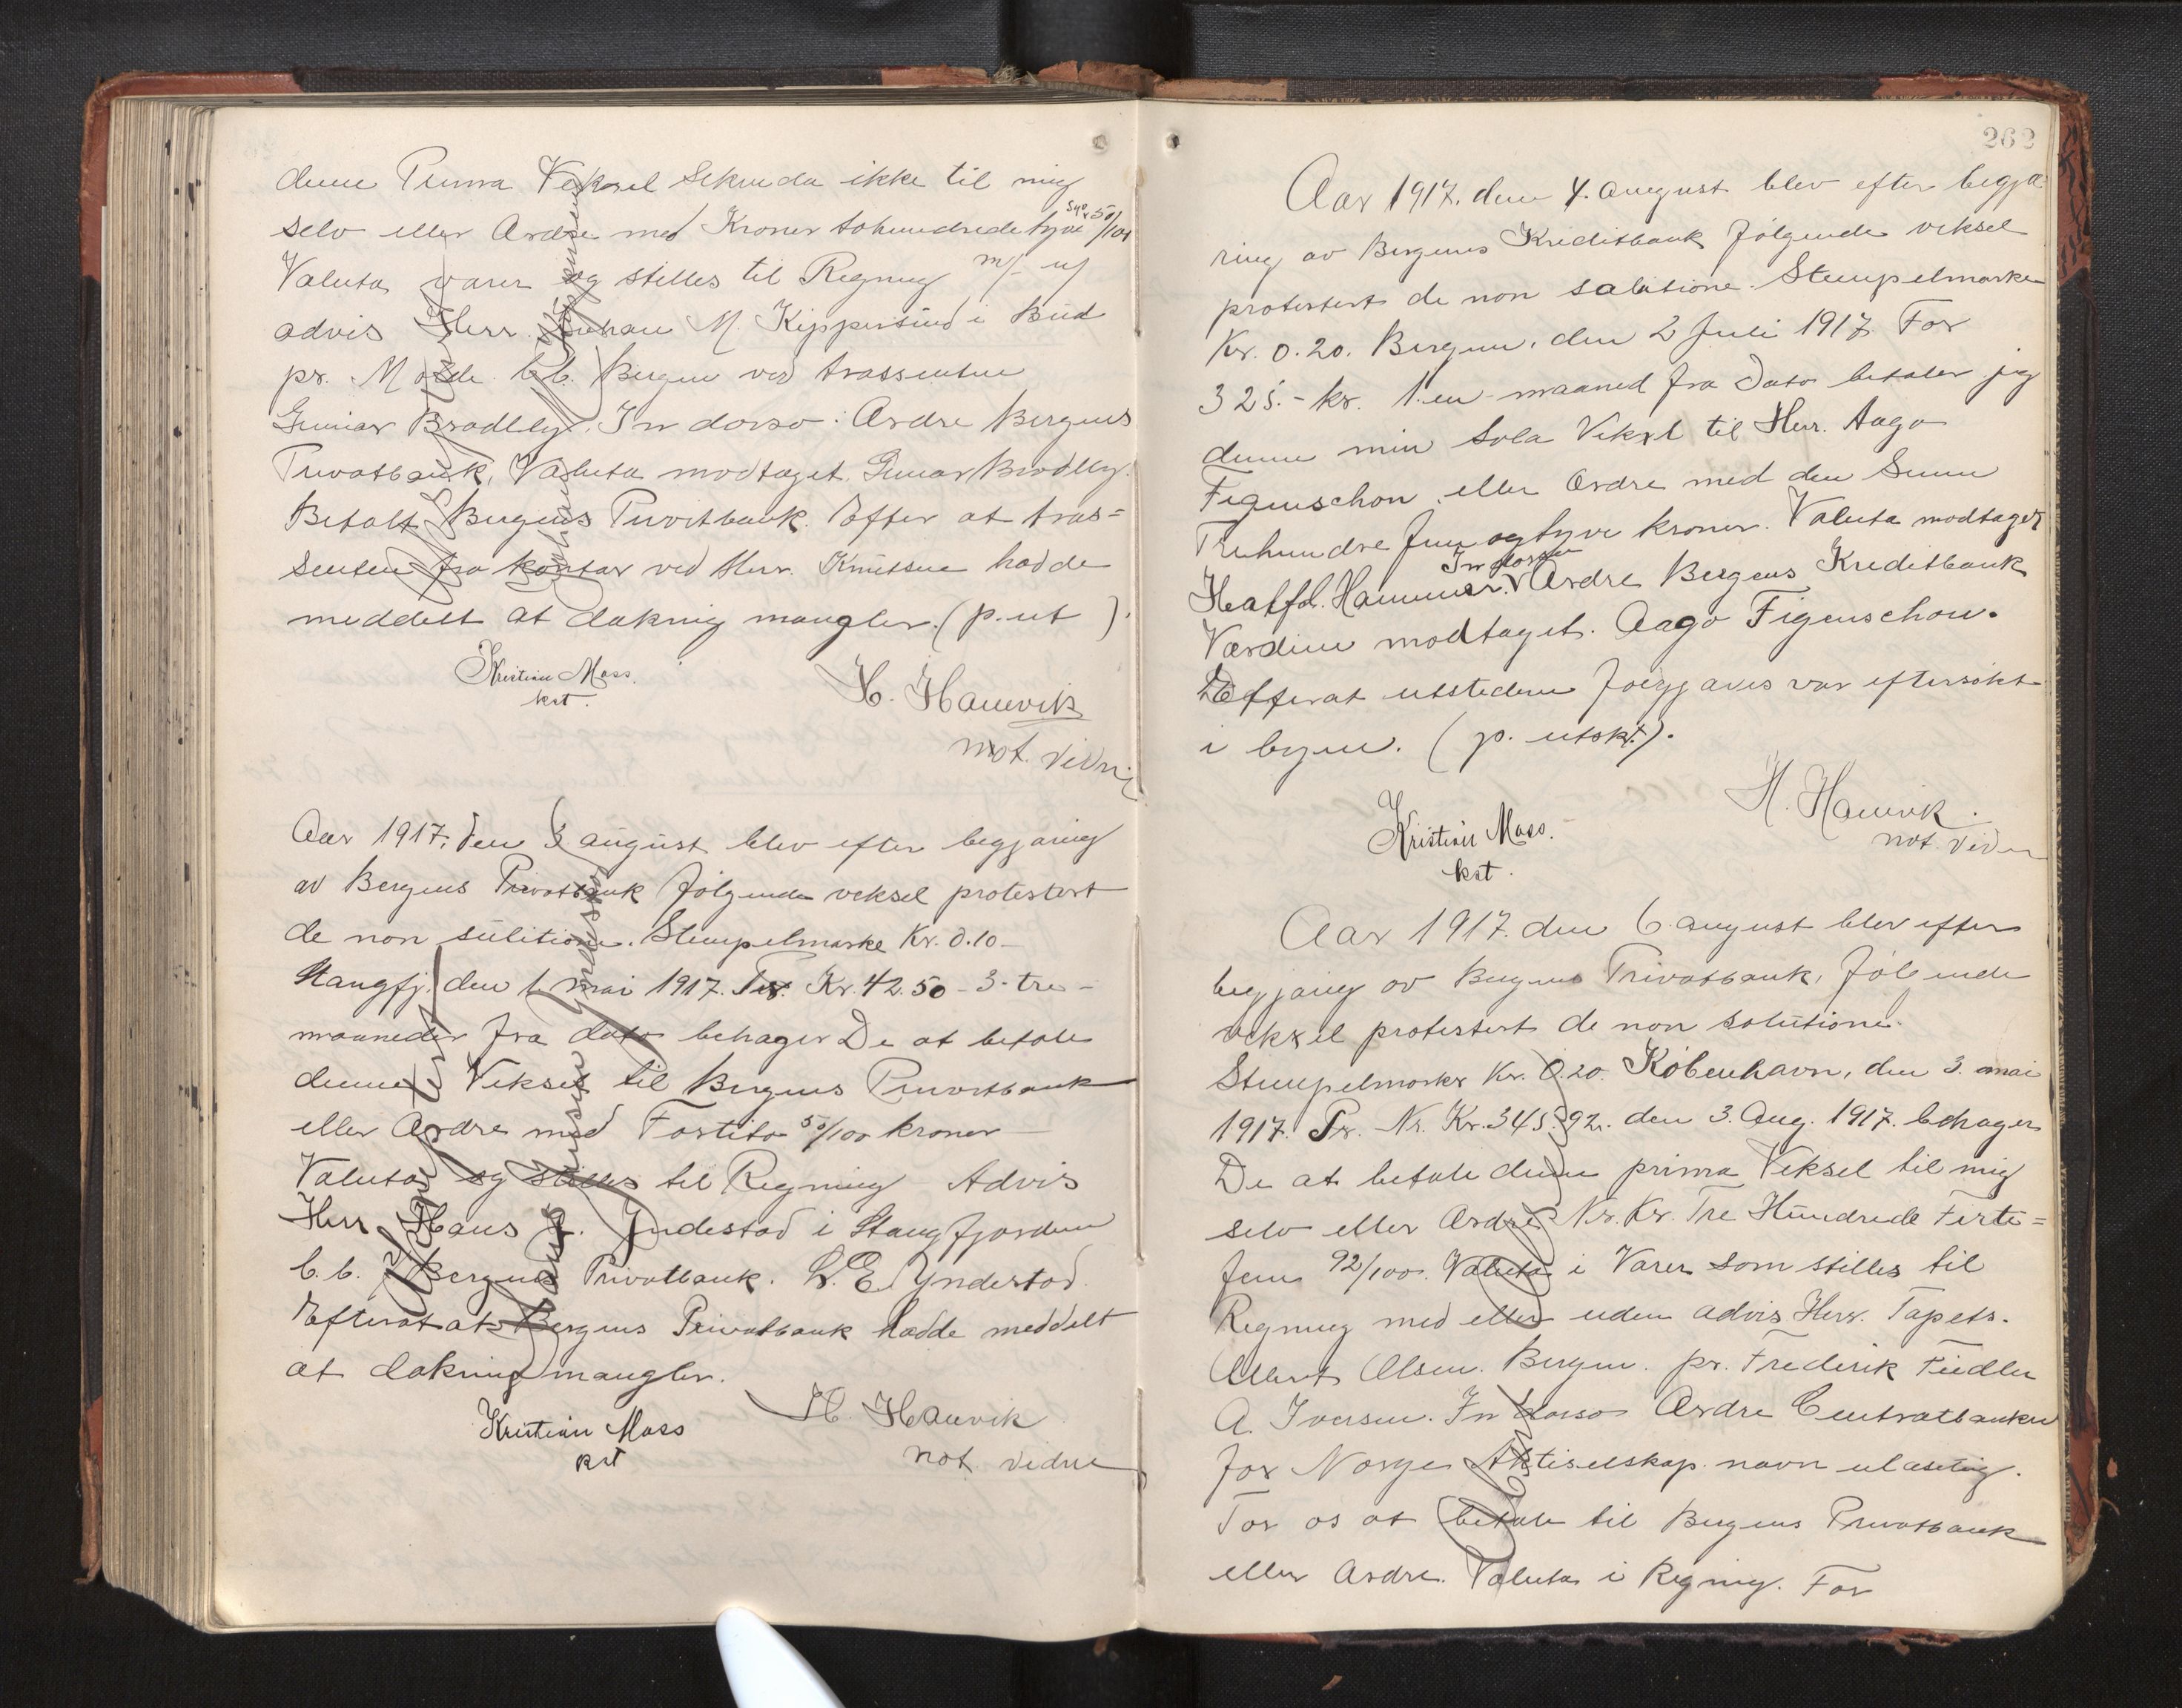 denne Prima Veksel Sekunda ikke til mig
selv eller Ordre med Kroner tohundredetyve syv 50/100
Valuta varer og stilles til Regning m/- u/
advis Herr Johan M. Kippersund i Bud
pr. Molde b.b. Bergen ved trassenten
Gunnar Brodtly. In dorso: Ordre Bergens
Privatbank, Valuta modtaget. Gunar Brodtly.
Betalt Bergens Privatbank. Efter at tras=
senten fra kontor ved Herr. Knutsen hadde
meddelt at dækning mangler. (p. ut ).
Kristian Moss.
kst.
H. Hamvik
not. vidne
Aar 1917, den 3 august blev efter begjæring
av Bergens Privatbank følgende veksel protestert
de non sulitione. Stempelmarke Kr. 0.10
Stangfj. den 1. mai 1917. For Kr. 42.50 - 3 - tre -
maaneder fra dato behager De at betale
denne Veksel til Bergens Privatbank
eller Ordre med Fortito 50/100 kroner
Valuta og stilles til Regning Advis
Herr Hans J. Indestad i Stangfjorden
b.b. Bergens Privatbank. L. E. Yndestad.
Efterat at Bergens Privatbank hadde meddelt
at dækning mangler.
Kristian Moss
kst
H. Hamvik
not vidne
262
Aar 1917. den 4. august blev efter begjæ
ring av Bergens Kreditbank følgende veksel
protestert de non solutione. Stempelmarke
Kr. 0.20. Bergen, den 2 Juli 1917. For
325.- kr. 1. en - maaned fra Dato betaler jeg
denne min Sola Veksel til Herr. Aago
Figenschou eller Ordre med den Summ
Trehundre fem og tyve kroner. Valuta modtaget
In dorso
Hammer. Ordre Bergens Kreditbank
Værdien modtaget. Aago Figenschou.
Efterat utstederen forgjæves var eftersøkt
i byen. (p. utskt.).
H. Hamvik.
not. vidne
Kristian Moss.
kst.
Aar 1917. den 6 august blev efter
begjæring av Bergens Privatbank, følgende
veksel protestert de non solutione.
Stempelmarke Kr. 0.20. København, den 3. mai
1917. Pr. Nr. Kr. 345.92. den 3. Aug. 1917. behager
De at betale denne prima Veksel til mig
selv eller Ordre Nr. Kr. Tre Hundrede Firti=
fem 92/100. Valuta i Varer som stilles til
Regning med eller uden advis Herr. Tapets.
Olsen. Bergen. pr. Frederik Fiedler
A. Iversen. In dorso Ordre Centralbanken
for Norge Aktieselskap. navn ulæselig.
For os at betale til Bergens Privatbank
eller Ordre. Valuta i Regning. For